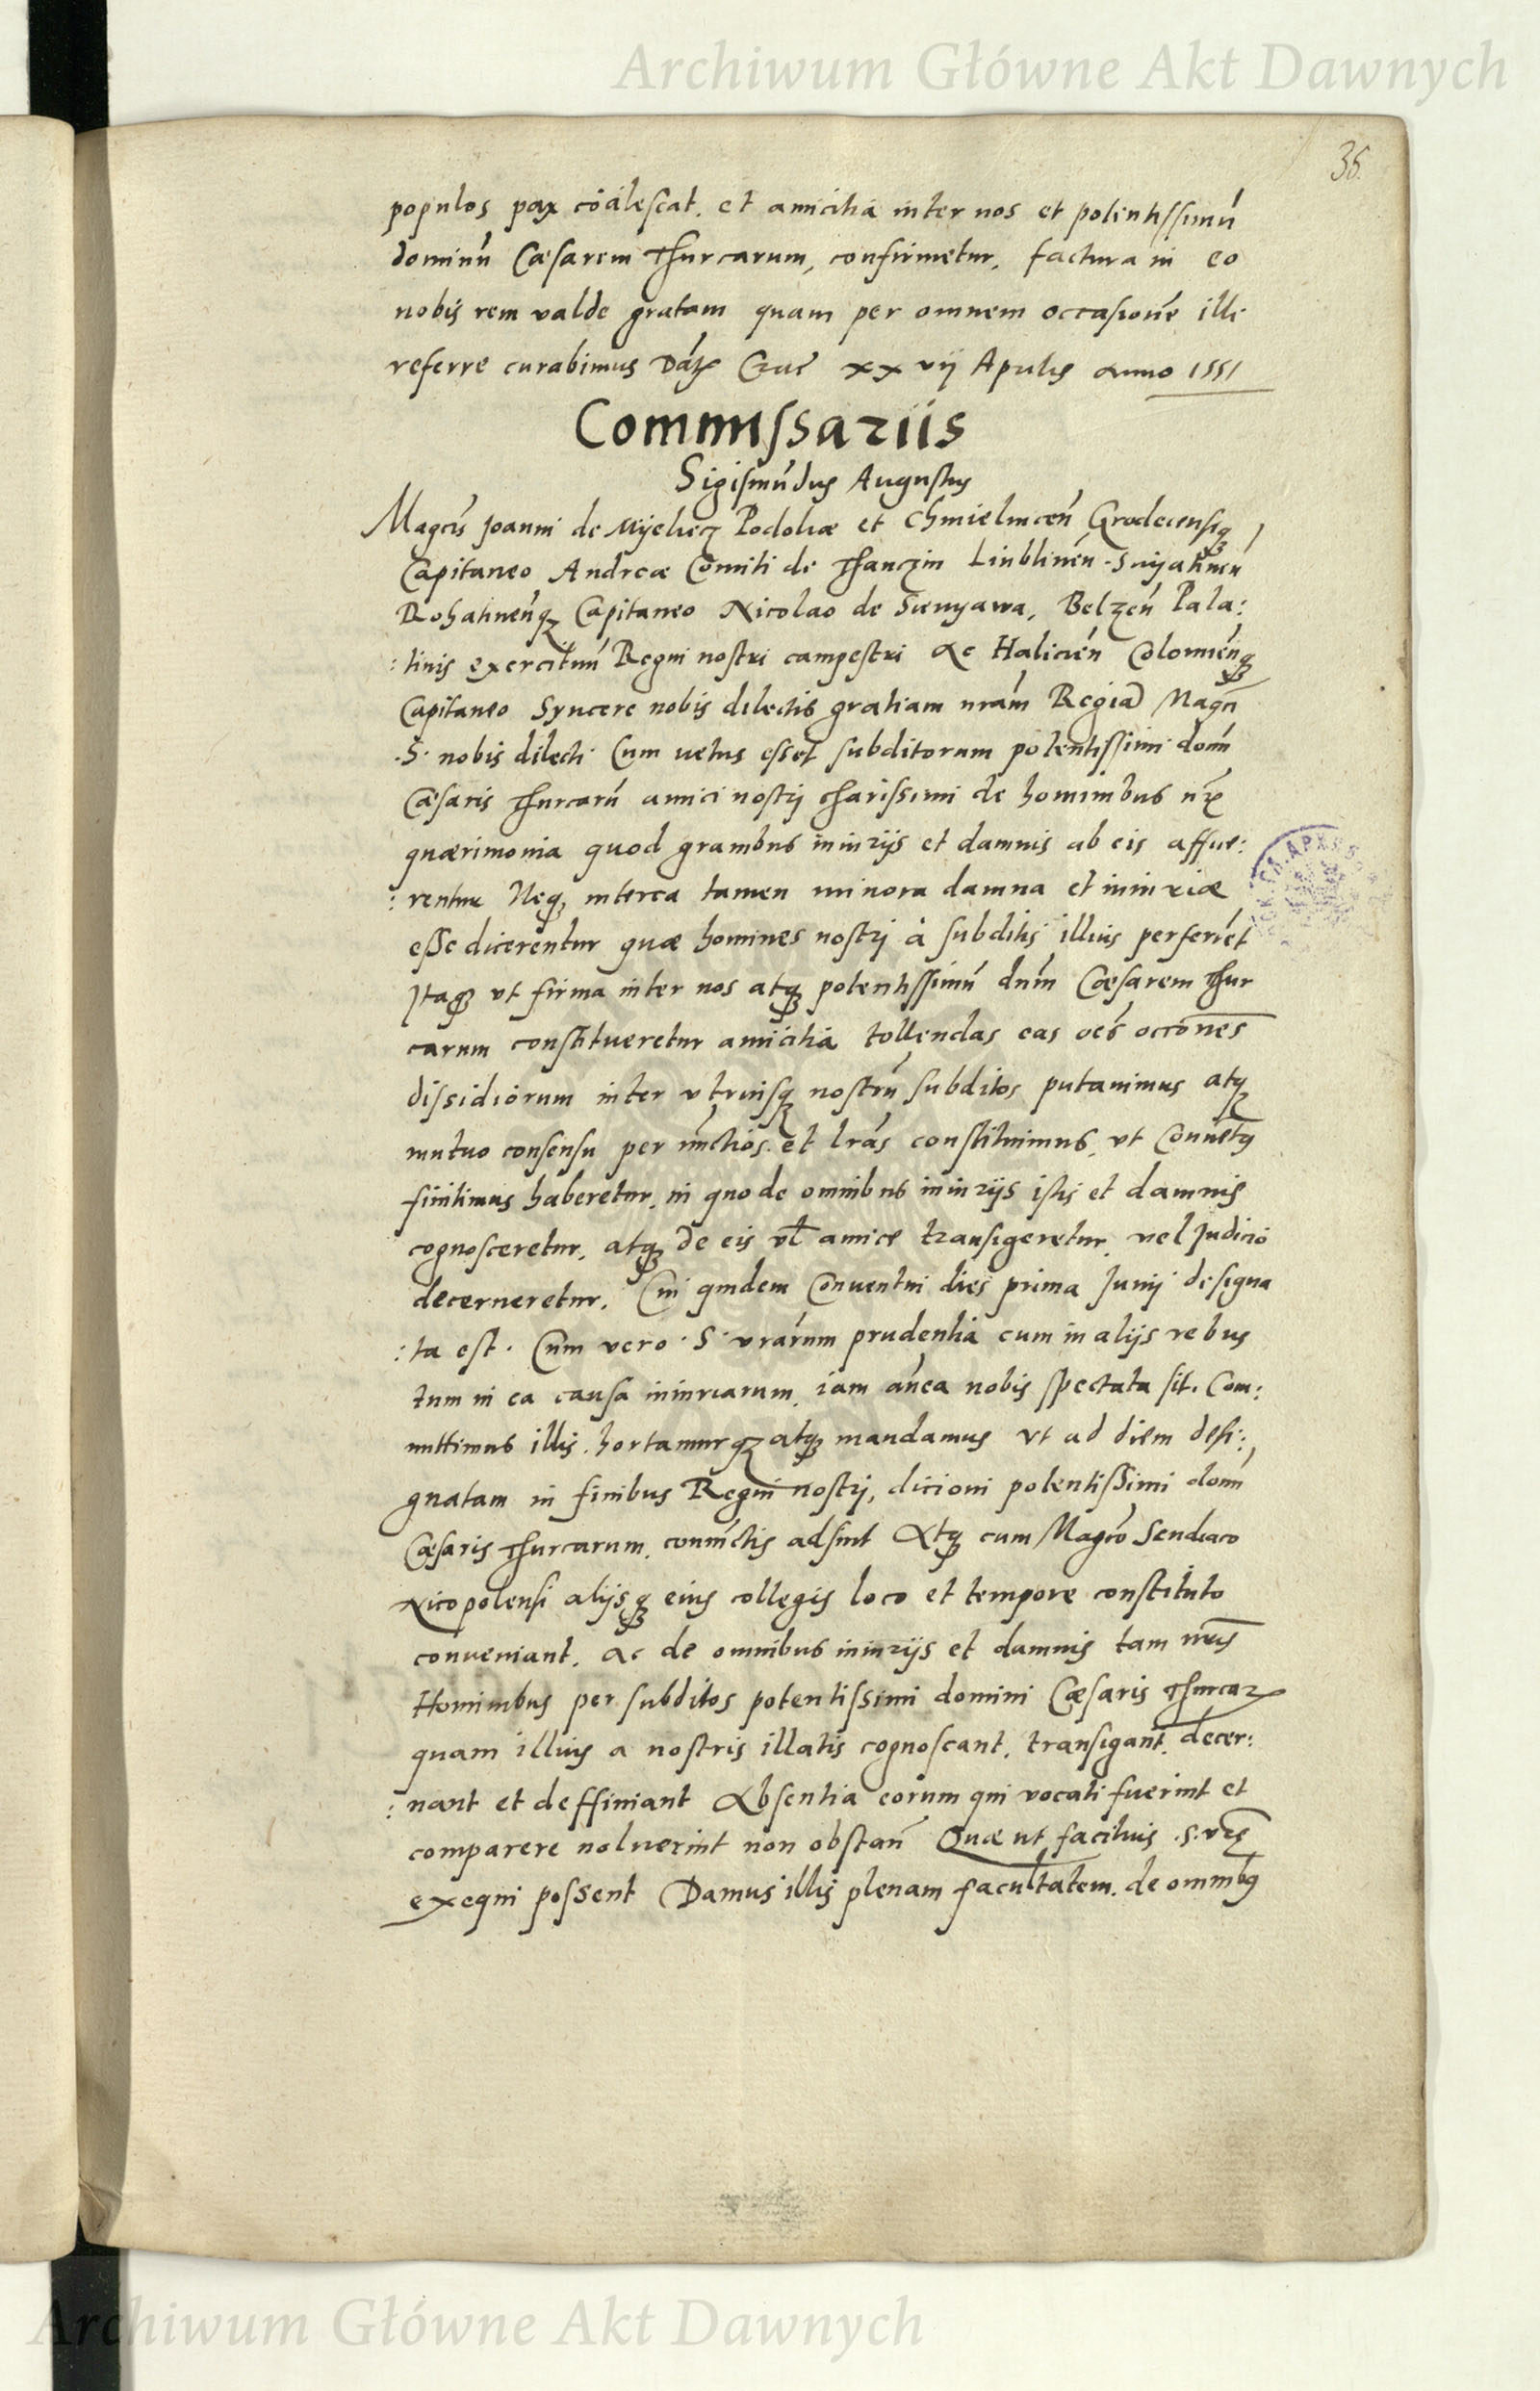 Archiwum Główne Akt Dawnych
36.
populos pax coalescat. et amicitia inter nos et potentissimū
dominū Cæsarem Thurcarum, confirmetur. factura in eo
nobis rem valde gratam quam per omnem occasionē illi
referre curabimus Datæ Crac xx vij Aprilis anno 1551
Commissariis
Sigismūdus Augustus
Magcis Joanni de Myelecz Podoliæ et Chmielnicen̄ Grodecensiq;
Capitaneo Andreæ Comiti de Thanczin Liublinen̄ Sniyatinen̄
Rohatinen̄q; Capitaneo Nicolao de Sienyawa, Belzen̄ Pala:
:tinis exercituū Regni nostri campestri ac Halicien̄ Colomien̄q;
Capitaneo Syncere nobis dilectis gratiam nrām Regiā Magci
.S. nobis dilecti Cum vetus esset subditorum potentissimi domi
Cæsaris Thurcarū amici nostrj charissimi de hominibus nr̄is
quærimonia quod gravibus iniurijs et damnis ab eis affice:
:rentur Neq; interea tamen minora damna et iniuriæ
esse dicerentur quæ homines nostrj à subditis illius perferrēt
Itaq; vt firma inter nos atq; potentissimū dnm̄ Cæsarem Thur
carum constitueretur amicitia tollendas eas oēs occōnes
dissidiorum inter vtriusq; nostrū subditos putavimus atq;
mutuo consensu per nūctios et lrās constituimus, vt Conuētq
finitimus haberetur, in quo de omnibus iniurijs istis et damnis
cognosceretur, atq; de eis vl̄ amice transigeretur, vel Judicio
decerneretur. Cui quidem Conventui dies prima Junij designa
:ta est. Cum vero .S. vrārum prudentia cum in alijs rebus
tum in ea causa iniuriarum, iam anēa nobis spectata sit. Com:
mittimus illis, hortamurq; atq; mandamus vt ad diem desi:
gnatam in finibus Regni nostrj, dicioni potentissimi domi
Cæsaris Thurcarum, coniūctis adsint Atq; cum Magco Sendiaco
Nicopolensi alijsq; eius collegis loco et tempore constituto
conveniant, ac de omnibus iniurijs et damnis tam nr̄is
Hominibus per subditos potentissimi domini Cæsaris Thurcar
quam illius a nostris illatis cognoscant, transigant, decer:
:nant et deffiniant Absentia eorum qui vocati fuerint et
comparere noluerint non obstan̄ Quæ ut facilius .S. vr̄æ
exequi possent Damus illis plenam facultatem. de omnibq
Archiwum Główne Akt Dawnych